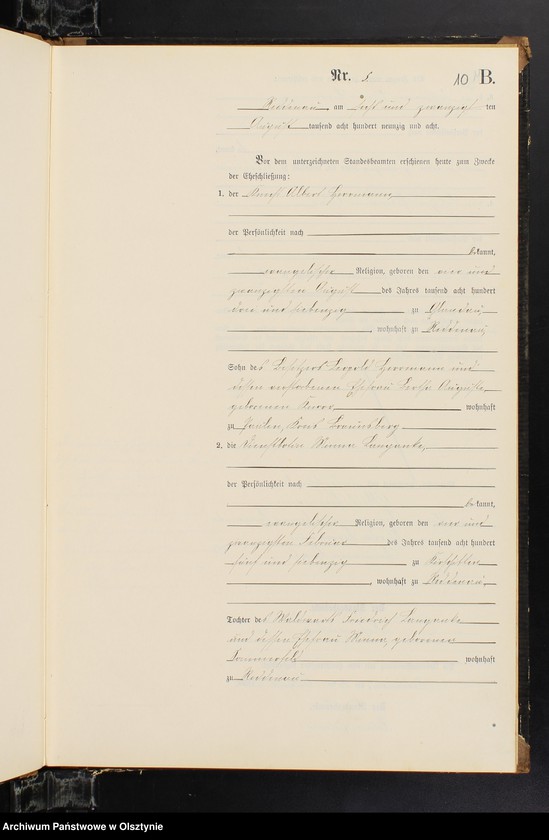 Nr. 10 B.
Reddenau, am Sechs und zwanzigsten
August tausend acht hundert neunzig und acht.
Vor dem unterzeichneten Standesbeamten erschienen heute zum Zwecke
der Eheschließung:
1. der Albert Herrmann
der Persönlichkeit nach
bekannt,
evangelischer Religion, geboren den vier und
zwanzigsten August des Jahres tausend acht hundert
drei und siebenzig zu Glandau
, wohnhaft zu Reddenau
Sohn des Besitzers Leopold Herrmann und
dessen verstorbenen Ehefrau Auguste
geborenen wohnhaft
zu Kreis Braunsberg
2. die Minna Langanke,
der Persönlichkeit nach
bekannt,
evangelischer Religion, geboren den vier und
zwanzigsten Februar des Jahres tausend acht hundert
fünf und siebenzig zu
, wohnhaft zu Reddenau,
Tochter des Friedrich Langanke
und dessen Ehefrau Minna, geborenen
Sommerfeld wohnhaft
zu Reddenau
Archiwum Państwowe w Olsztynie